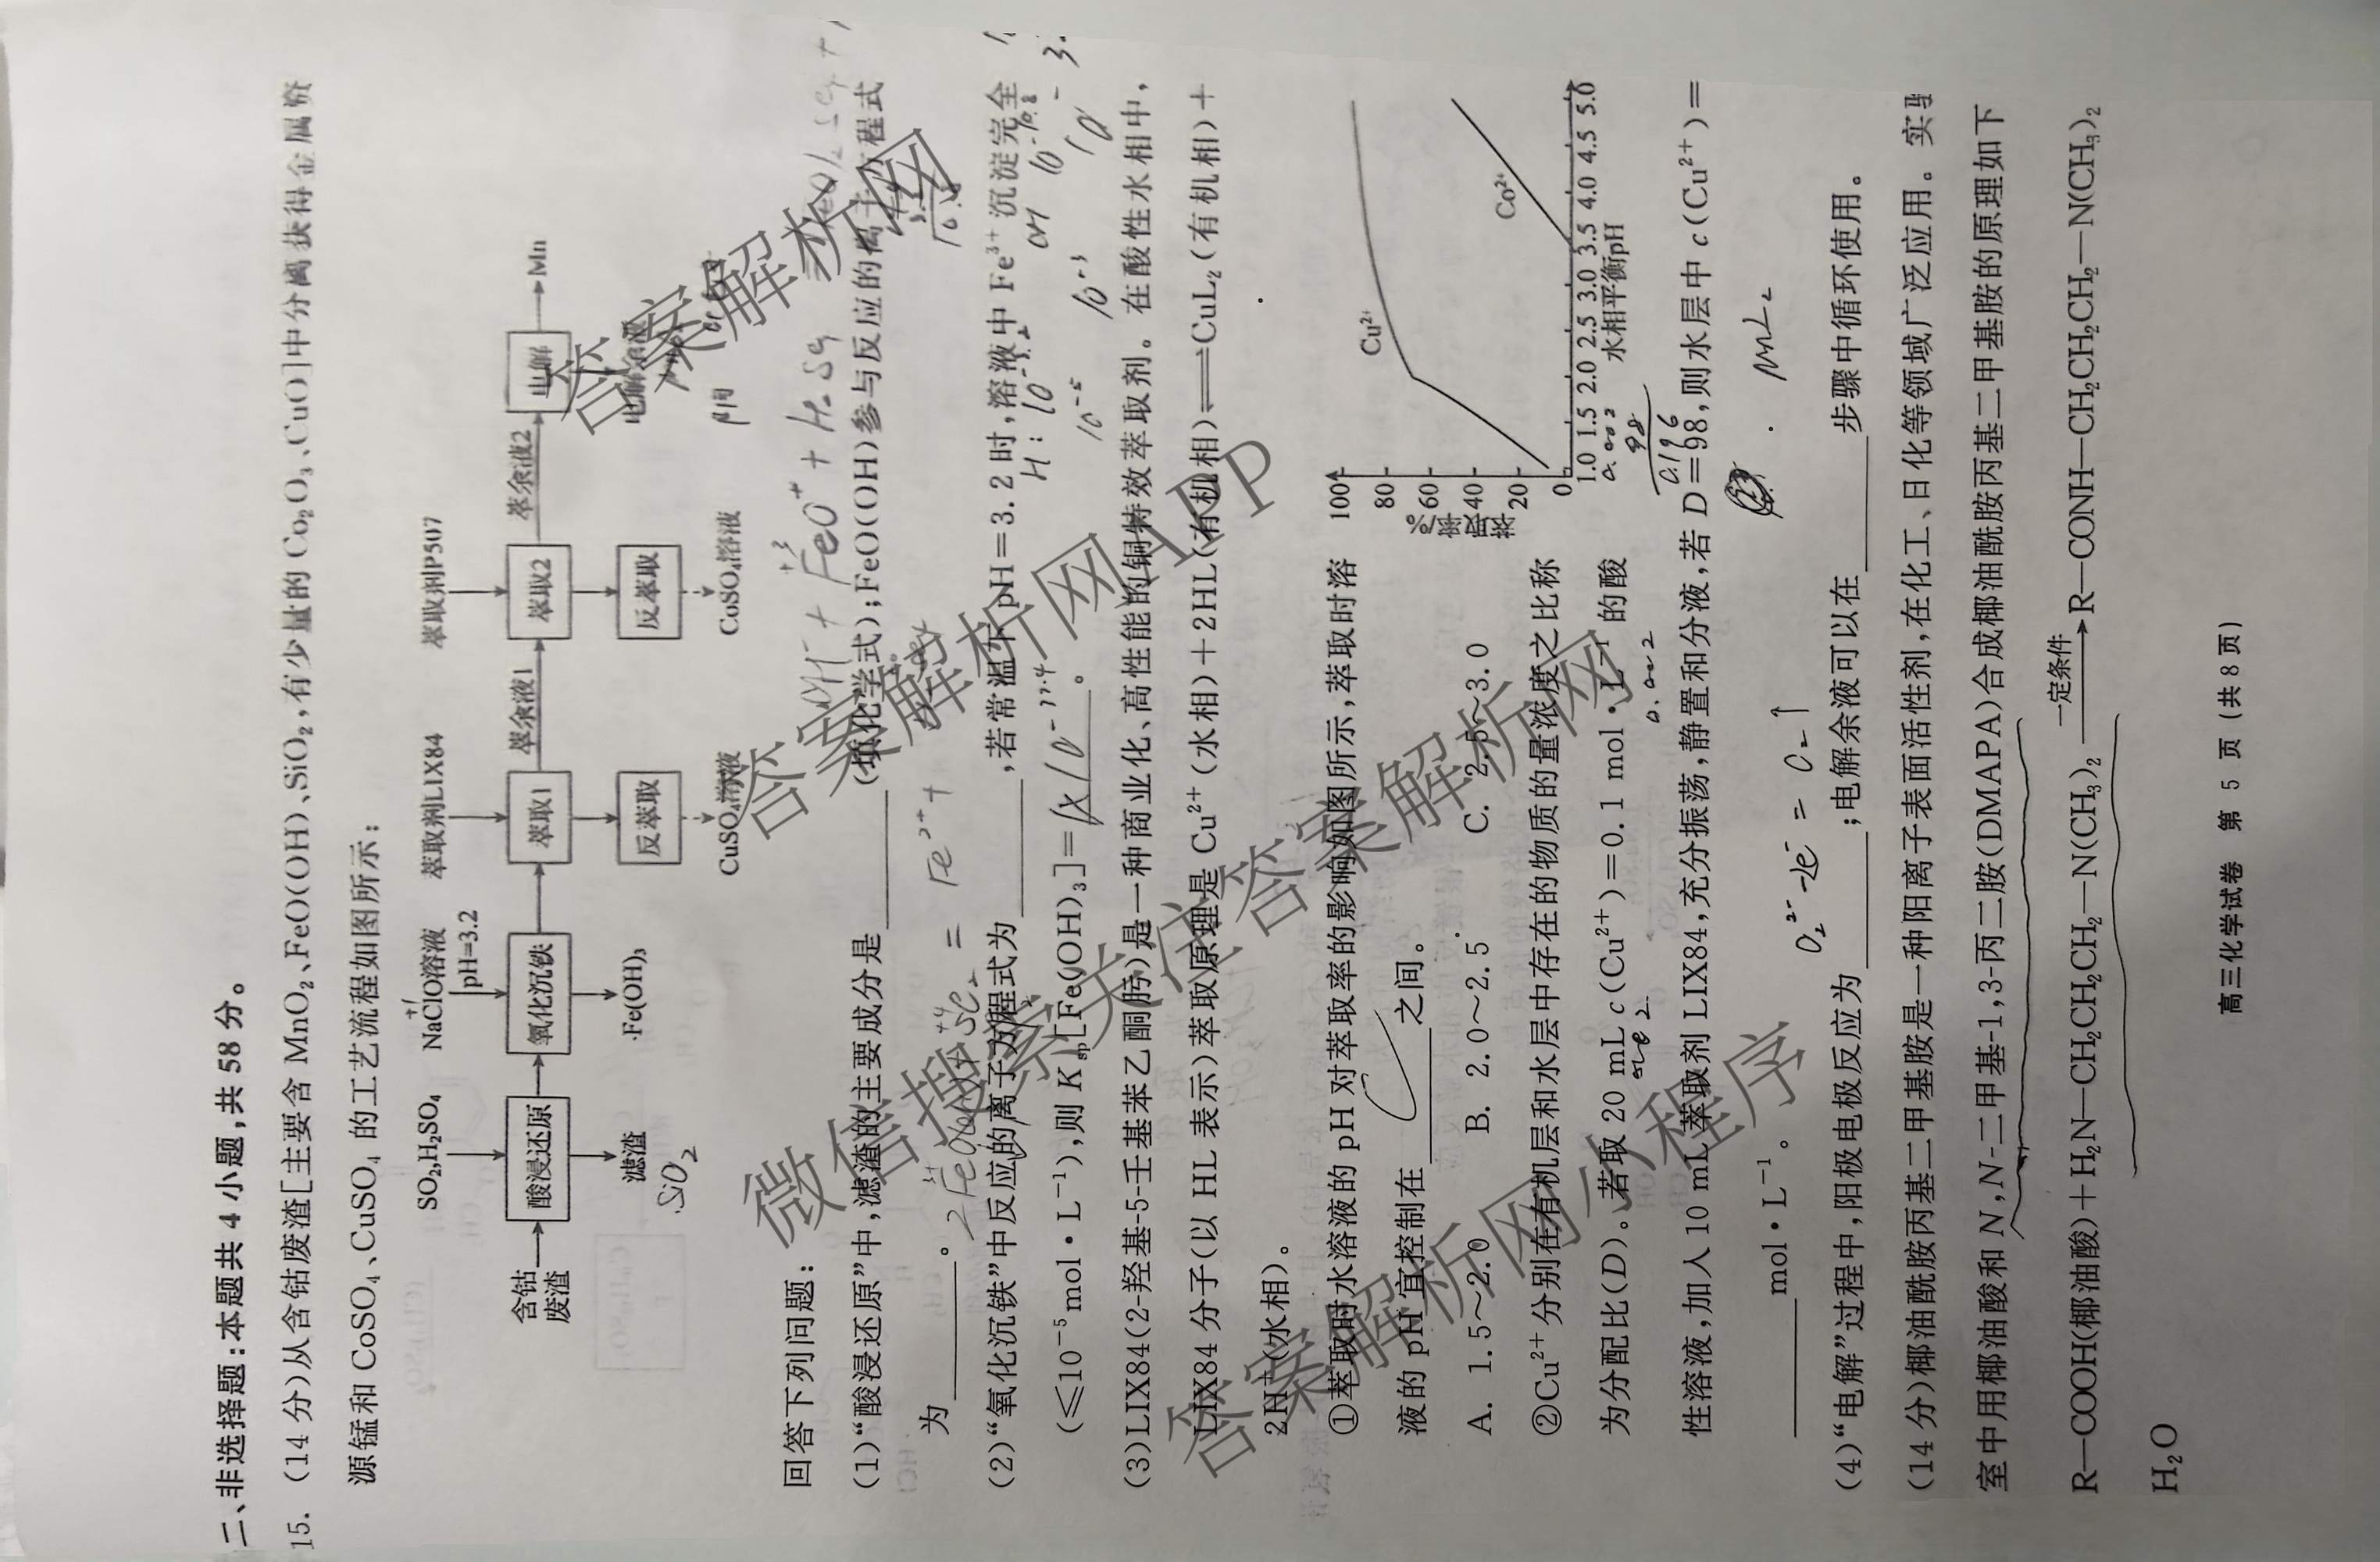 二、非选择题:本题共 4 小题,共 58 分。
15. (14 分)从含钴废渣[主要含 MnO₂、FeO(OH)、SiO₂,有少量的 Co₂O₃、CuO]中分离获得金属资
源锰和 CoSO₄、CuSO₄ 的工艺流程如图所示:
SO₂、H₂SO₄
NaClO溶液
pH=3.2
萃取剂LIX84
萃取剂P507
含钴
废渣
酸浸还原
氧化沉铁
萃取1
萃余液1
萃取2
萃余液2
电解
Mn
滤渣
Fe(OH)₃
反萃取
反萃取
SiO₂
CuSO₄溶液
CoSO₄溶液
回答下列问题:
(1)“酸浸还原”中,滤渣的主要成分是________(填化学式);FeO(OH)参与反应的离子方程式
为________。
(2)“氧化沉铁”中反应的离子方程式为________,若常温下 pH=3.2 时,溶液中 Fe³⁺沉淀完全
(≤10⁻⁵ mol·L⁻¹),则 Kₛₚ[Fe(OH)₃]=________。
(3)LIX84(2-羟基-5-壬基苯乙酮肟)是一种商业化、高性能的铜特效萃取剂。在酸性水相中,
LIX84 分子(以 HL 表示)萃取原理是 Cu²⁺(水相)+2HL(有机相)⇌CuL₂(有机相)+
2H⁺(水相)。
①萃取时水溶液的 pH 对萃取率的影响如图所示,萃取时溶
液的 pH 宜控制在________之间。
C
A. 1.5~2.0 B. 2.0~2.5 C. 2.5~3.0
萃取率/%
100
80
60
40
20
0
Cu²⁺
Co²⁺
1.0 1.5 2.0 2.5 3.0 3.5 4.0 4.5 5.0
水相平衡pH
②Cu²⁺分别在有机层和水层中存在的物质的量浓度之比称
为分配比(D)。若取 20 mL c(Cu²⁺)=0.1 mol·L⁻¹ 的酸
性溶液,加入 10 mL 萃取剂 LIX84,充分振荡,静置和分液,若 D=98,则水层中 c(Cu²⁺)=
________mol·L⁻¹。
(4)“电解”过程中,阳极电极反应为________;电解余液可以在________步骤中循环使用。
(14 分)椰油酰胺丙基二甲基胺是一种阳离子表面活性剂,在化工、日化等领域广泛应用。实
室中用椰油酸和 N,N-二甲基-1,3-丙二胺(DMAPA)合成椰油酰胺丙基二甲基胺的原理如下
R—COOH(椰油酸)+H₂N—CH₂CH₂CH₂—N(CH₃)₂ 一定条件→ R—CONH—CH₂CH₂CH₂—N(CH₃)₂
H₂O
高三化学试卷 第 5 页(共 8 页)